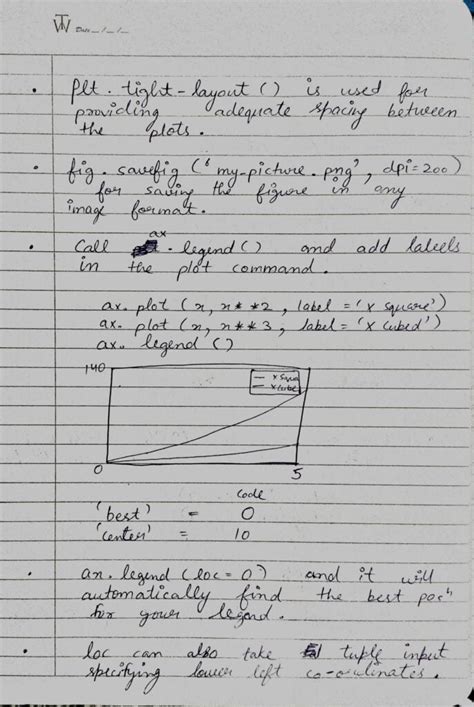 TW Date __/__/__
plt. tight-layout () is used for
providing adequate spacing between
the plots.
fig. savefig ('my-picture.png', dpi=200)
for saving the figure in any
image format.
ax
Call .legend() and add labels
in the plot command.
ax. plot (x, x**2, label = 'x square')
ax. plot (x, x**3, label = 'x cubed')
ax. legend ()
140
x squa
x cube
0 5
code
'best' = 0
'center' = 10
ax. legend (loc=0) and it will
automatically find the best posn
for your legend.
loc can also take tuple input
specifying lower left co-ordinates.